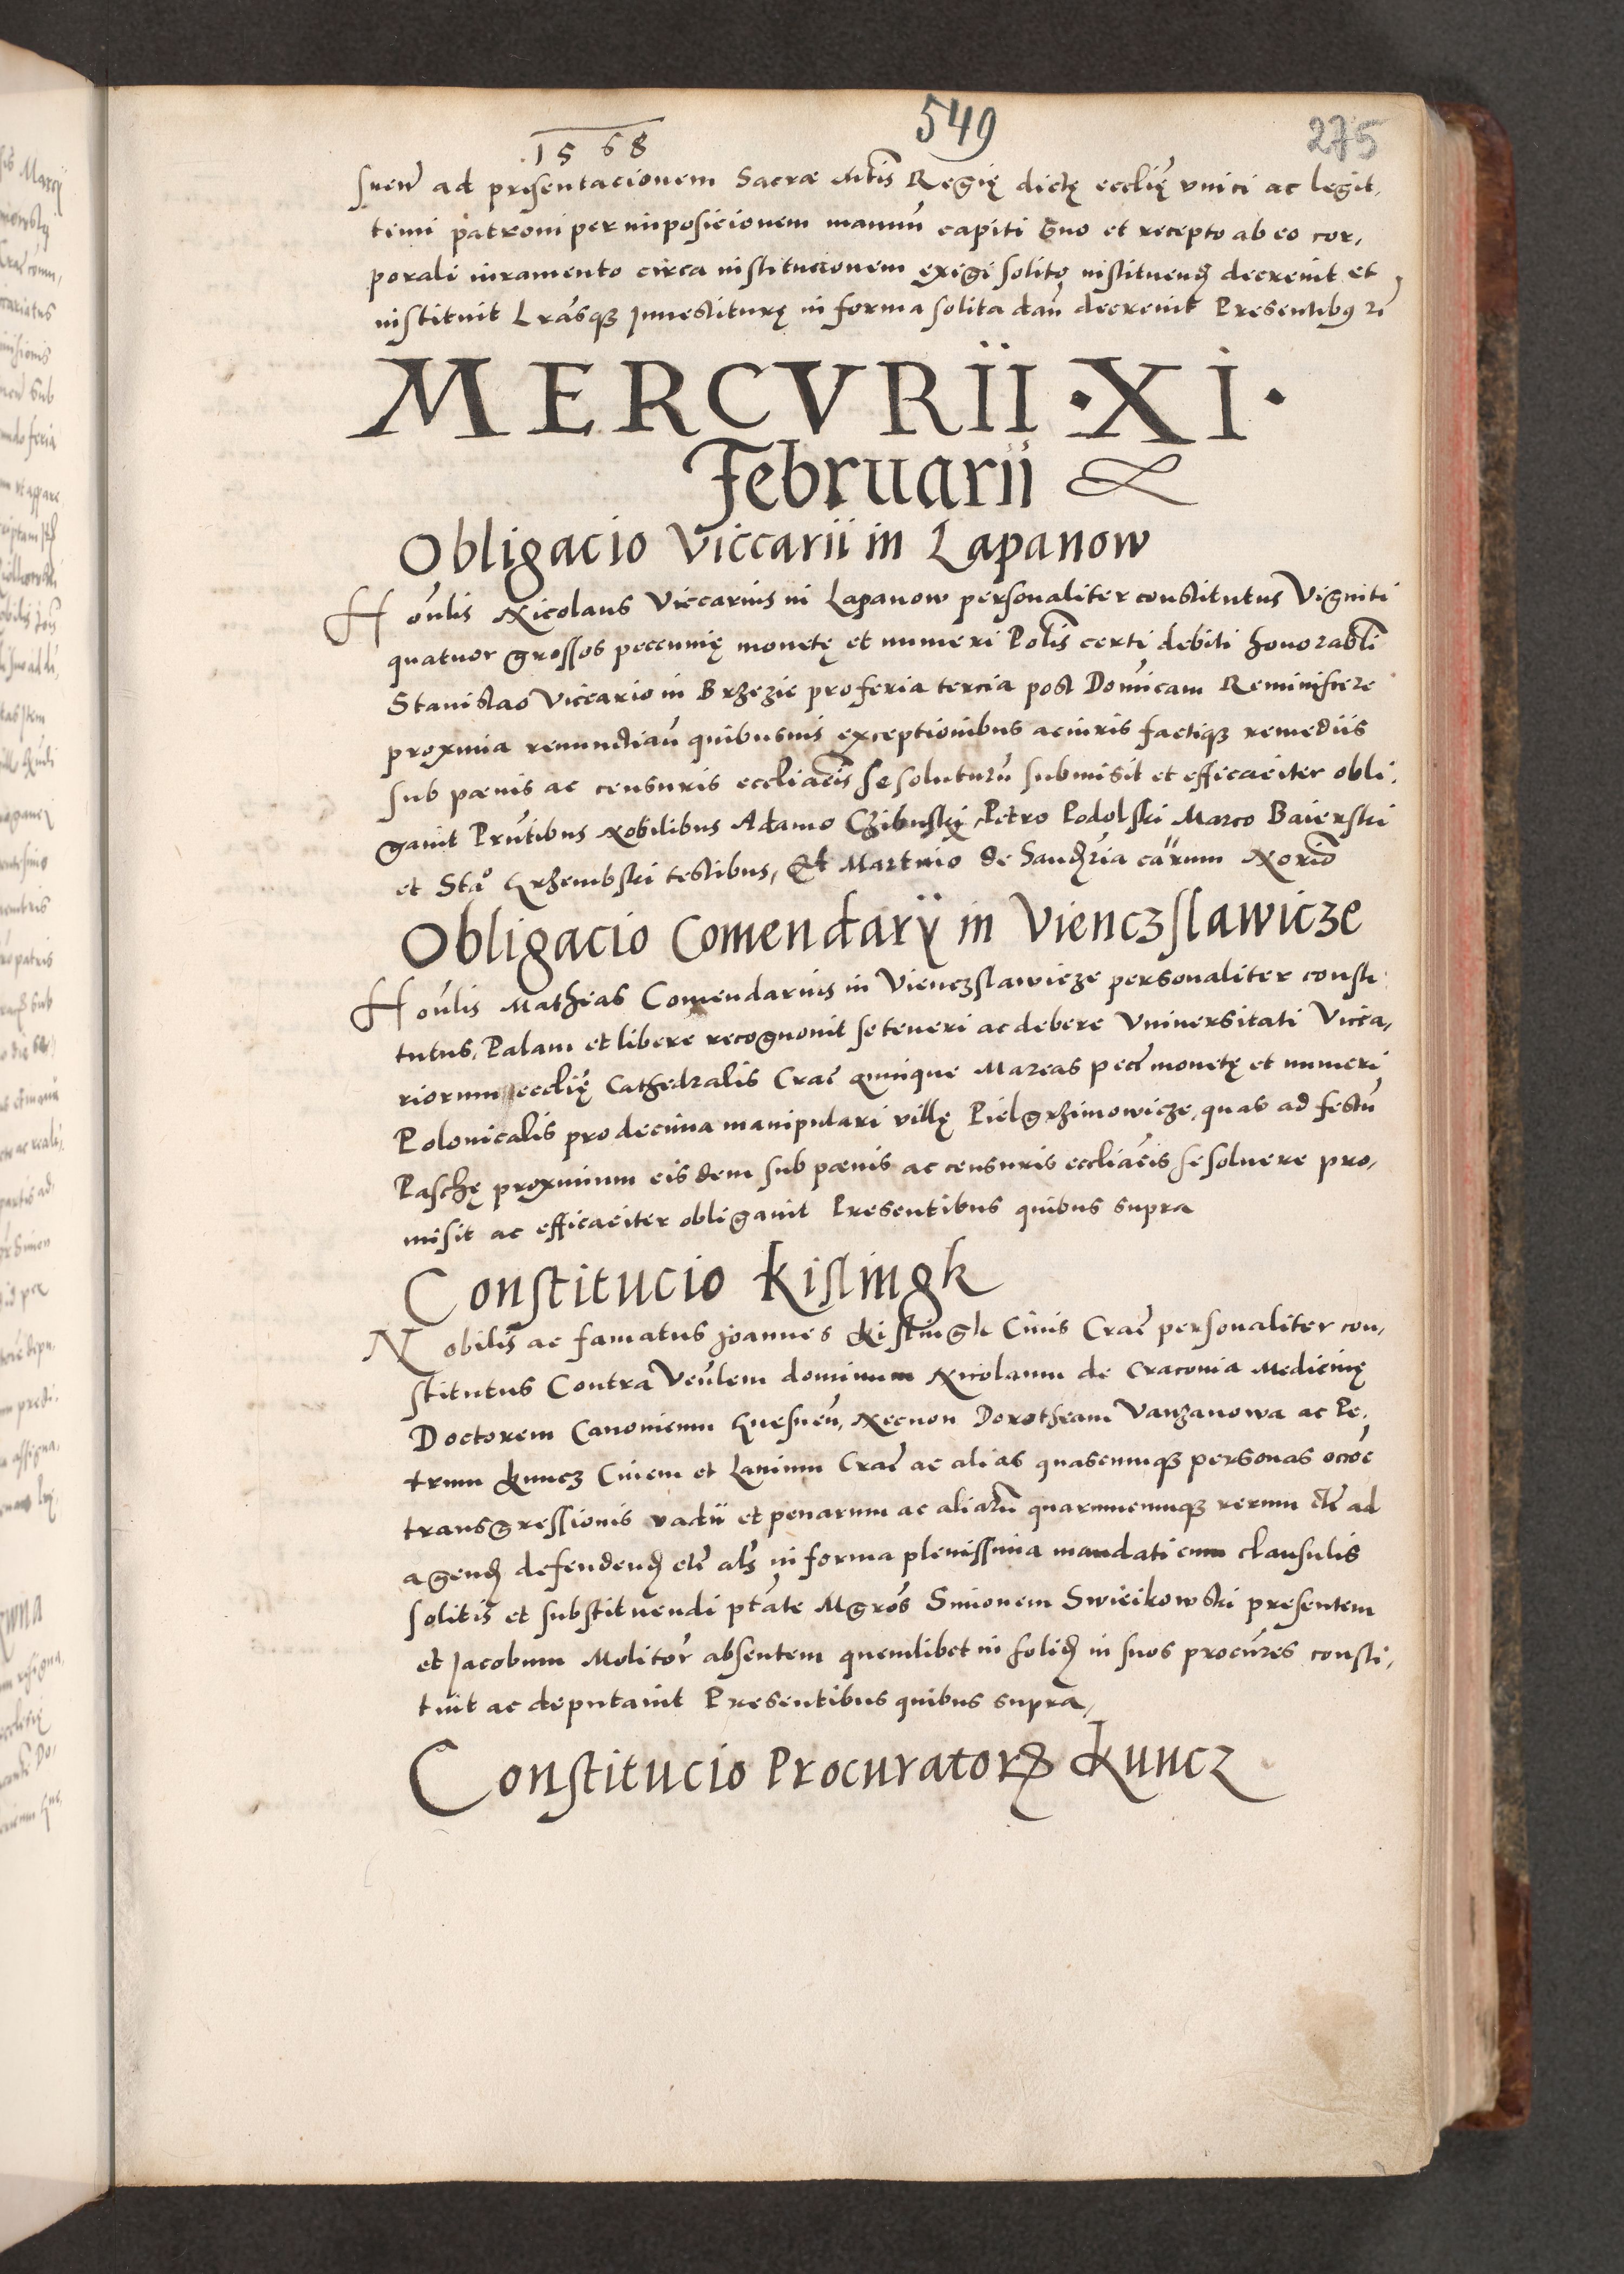 549
275
1568
suen̄ ad presentacionem Sacræ Mtis Regię dictę ecclię vnici ac legit,
timi patroni per imposicionem manuū capiti suo et recepto ab eo cor,
porali iuramento circa institucionem exigi solito instituend decreuit et
instituit Lrasq3 Inuestiturę in forma solita dan̄ decreuit Presentib9
MERCVRII · XI ·
Februarii
Obligacio Viccarii in Lapanow
Honlis Nicolaus Viccarius in Lapanow personaliter constitutus Viginti
quatuor grossos peccunię monetę et numeri Polis certi debiti honorabli
Stanislao Viccario in Brzezie pro feria tercia post Domicam Reminiscere
proxima renunctiaň quibusuis exceptionibus ac iuris factiq3 remediis
sub pœnis ac censuris eccliacis se soluturū submisit et efficaciter obli,
gauit Prntibus Nobilibus Adamo Czibuski Petro Podolski Marco Baierski
et Stao Krzembski testibus, Et Martino de carum Norio
Obligacio Comendarÿ in Vienczslawicze
Honlis Mathias Comendarius in Vienczslawicze personaliter consti
tutus, Palam et libere recognouit se teneri ac debere Vniuersitati Vicca,
riorum ecclię Cathedralis Crac quinque Marcas pecc monetę et numeri
Polonicalis pro decima manipulari villę Pielgrzimowicze, quas ad festū
Paschę proximum eisdem sub pœnis ac censuris eccliacis se soluere pro,
misit ac efficaciter obligauit Presentibus quibus supra
Constitucio Kislingk
Nobilis ac famatus Joannes Kislingk Ciuis Crac personaliter con,
stitutus Contra Venlem dominum Nicolaum de Craconia Medicinę
Doctorem Canonicum Gnesnen, Necnon Dorotheam Vanzanowa ac Pe,
trum Kuncz Ciuem et Lanium Crac ac alias quascumq3 personas occoe
transgressionis vadii et penarum ac aliarū quarumcumq3 rerum etc ad
agend defendend etc als in forma plenissima mandati cum clausulis
solitis et substituendi ptate Mgros Simonem Swieikowski presentem
et Jacobum Molitor absentem quemlibet in solid in suos procures consti,
tuit ac deputauit Presentibus quibus supra,
Constitucio Procurator Kuncz